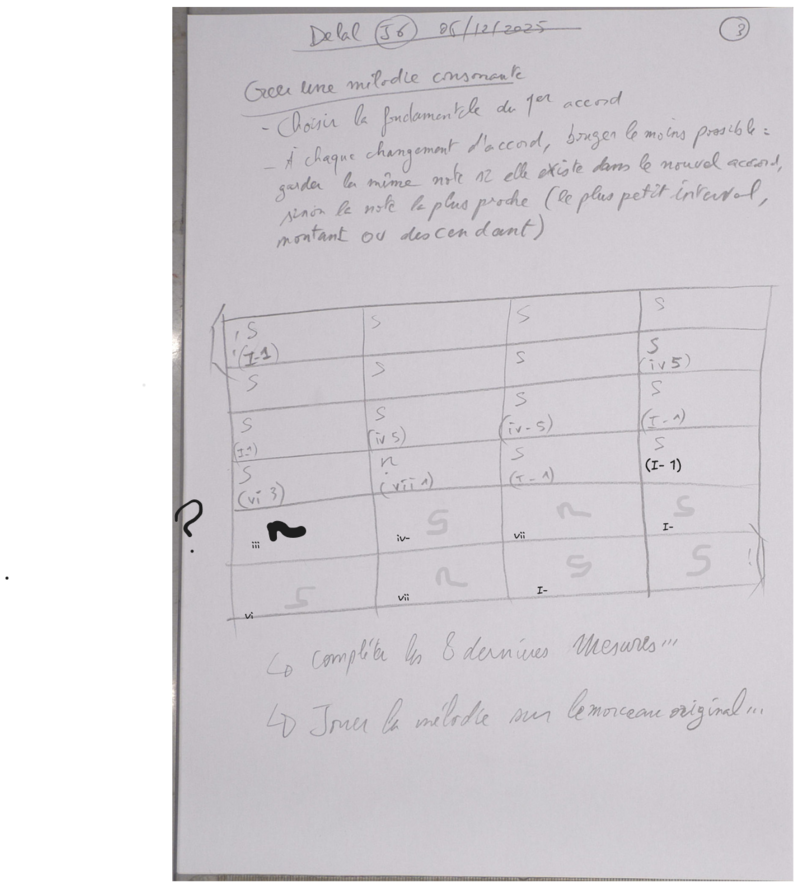 Delal J6 06/12/2025 3
Créer une mélodie consonante
- Choisir la fondamentale du 1er accord
- À chaque changement d'accord, bouger le moins possible :
garder la même note si elle existe dans le nouvel accord,
sinon la note la plus proche (le plus petit interval,
montant ou descendant)
S S S S
(I-1)
S S S S
(iv5)
S S S S
(I-1) (iv5) (iv-5) (I-1)
S r S S
(vi 3) (vii 1) (I-1) (I-1)
? r S r S
iii iv- vii I-
S r S S
vi vii I-
↳ compléter les 8 dernières mesures...
↳ Jouer la mélodie sur le morceau original...